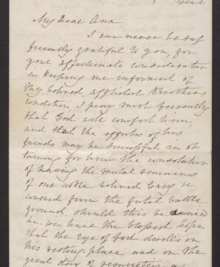 My Dear Ann
I can never be suf
ficiently grateful to you, for
your affectionate consideration
in keeping me informed of
My beloved afflicted Brothers
condition, I pray most fervently
that God will comfort him,
and that the efforts of his
friends may be successful in ob
taining for him the consolation
of having the mortal remains
of our noble beloved Boy re
moved from the fatal battle
ground should this be denied
we can have the blessed hope
that the Eye of God dwells on
his resting place, and on the
great day of